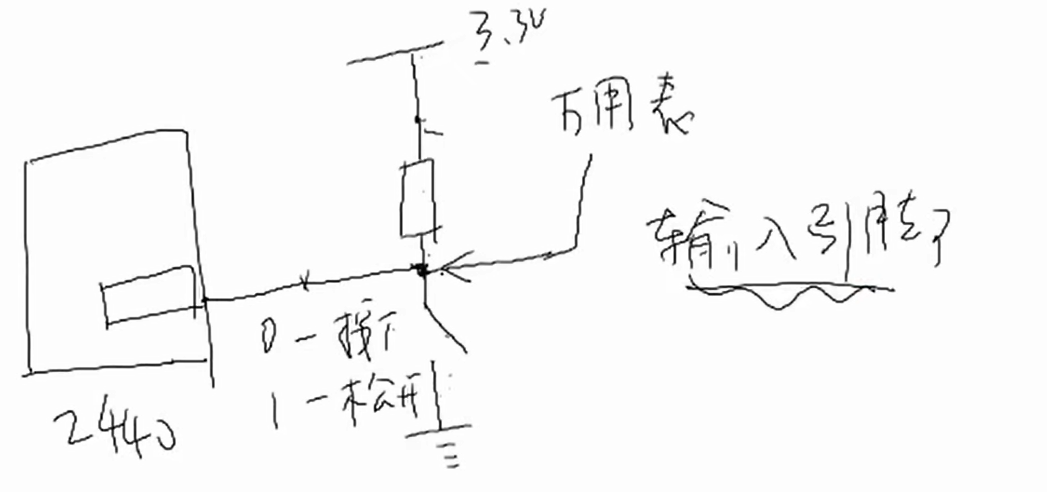 3.3V
万用表
输入引脚
0－按下
1－松开
2440